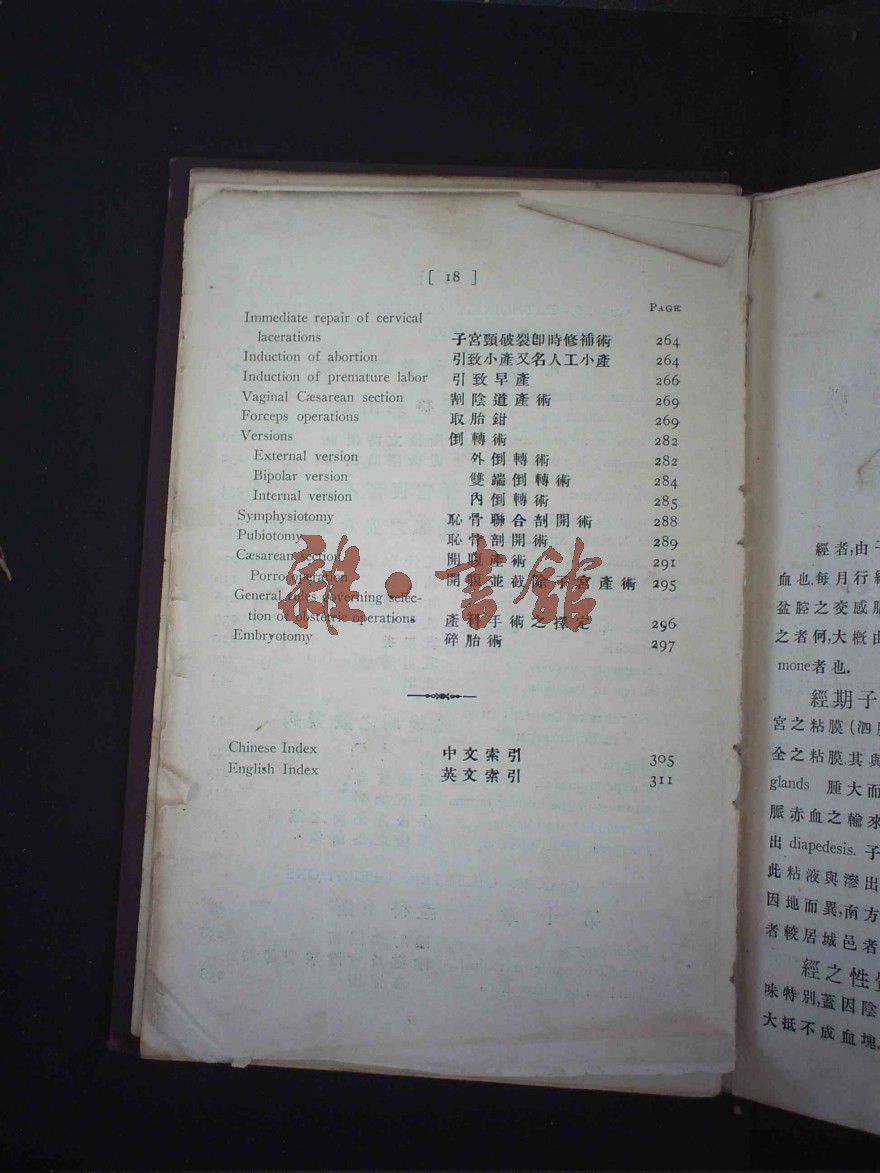 [ 18 ]
PAGE
Immediate repair of cervical
lacerations 子宮頸破裂卽時修補術 264
Induction of abortion 引致小產又名人工小產 264
Induction of premature labor 引致早產 266
Vaginal Cæsarean section 割陰道產術 269
Forceps operations 取胎鉗 269
Versions 倒轉術 282
External version 外倒轉術 282
Bipolar version 雙端倒轉術 284
Internal version 內倒轉術 285
Symphysiotomy 恥骨聯合剖開術 288
Pubiotomy 恥骨剖開術 289
Cæsarean section 開腹產術 291
Porro operation 開腹並截除子宮產術 295
General rules governing selec-
tion of obstetric operations 產科手術之擇定 296
Embryotomy 碎胎術 297
Chinese Index 中文索引 305
English Index 英文索引 311
雜·書館
經者,由子
血也,每月行經
盆腔之交感
之者何,大概由
mone者也.
經期子
宮之粘膜(泗
全之粘膜.其與
glands 腫大而
脈赤血之輸來
出 diapedesis. 子
此粘液與滲出
因地而異,南方
者較居城邑者
經之性質
味特別,蓋因陰
大抵不成血塊,